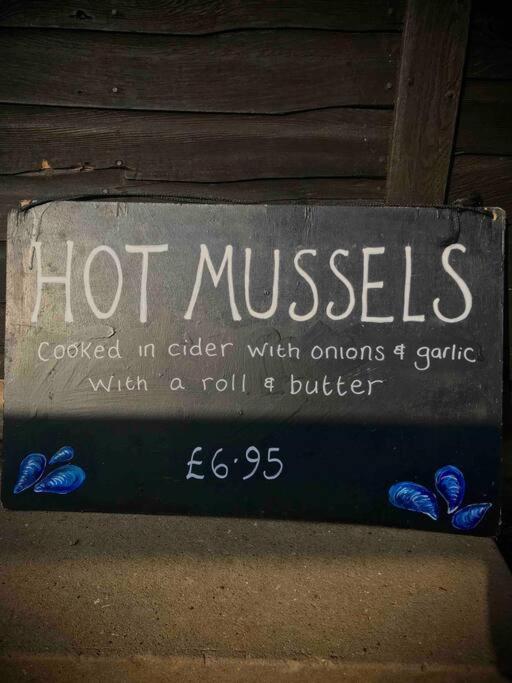 HOT MUSSELS
Cooked in cider with onions & garlic
With a roll & butter
£6.95